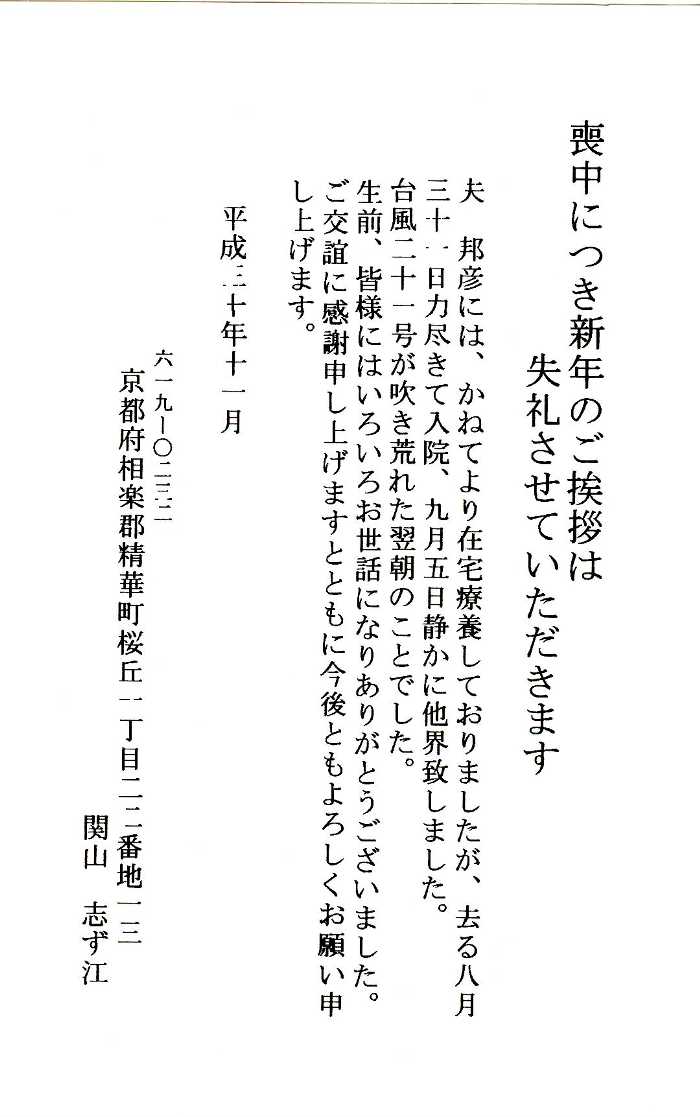 喪中につき新年のご挨拶は
失礼させていただきます
夫　邦彦には、かねてより在宅療養しておりましたが、去る八月
三十一日力尽きて入院、九月五日静かに他界致しました。
台風二十一号が吹き荒れた翌朝のことでした。
生前、皆様にはいろいろお世話になりありがとうございました。
ご交誼に感謝申し上げますとともに今後ともよろしくお願い申
し上げます。
平成三十年十一月
六一九ー〇二三二
京都府相楽郡精華町桜丘一丁目二二番地一三
関山　志ず江